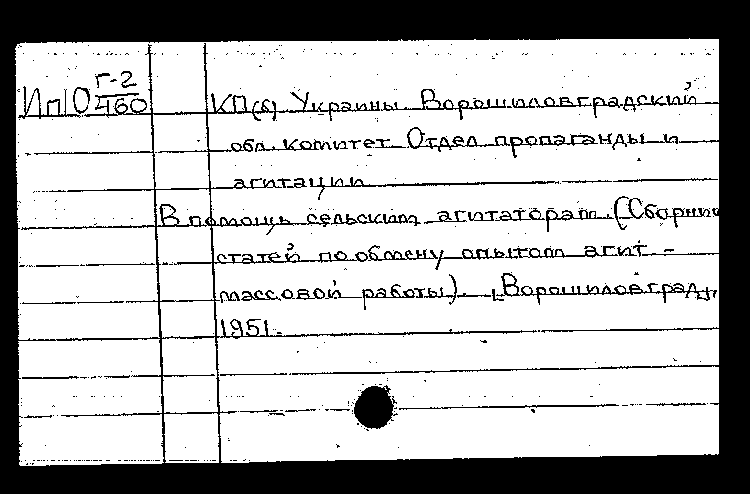 Ип10 Г-2/460
КП(б) Украины. Ворошиловградский
обл. комитет. Отдел пропаганды и
агитации.
В помощь сельским агитаторам. (Сборник
статей по обмену опытом агит -
массовой работы). [Ворошиловград],
1951.